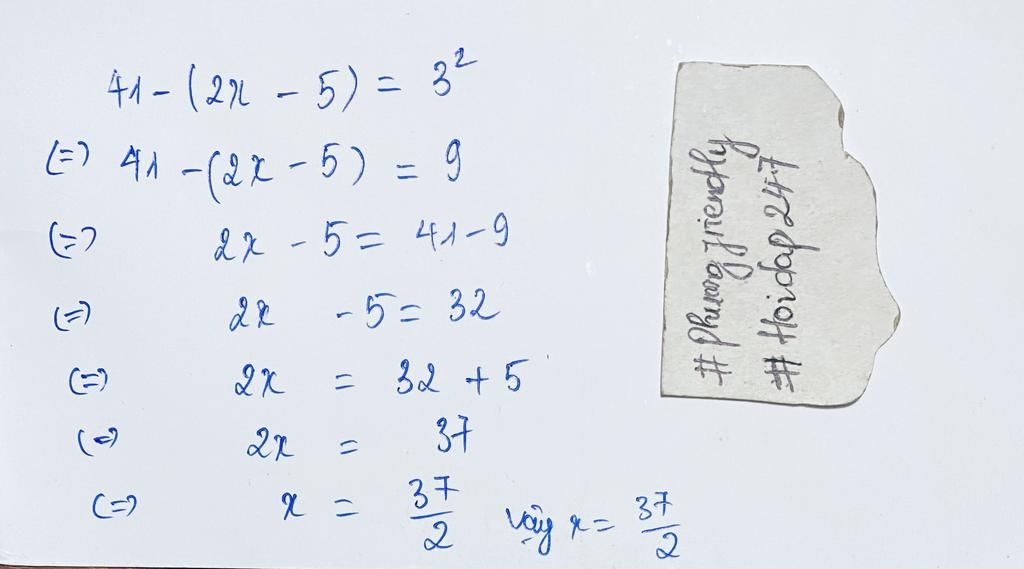 41 - (2x - 5) = 3²
(=) 41 - (2x - 5) = 9
(=) 2x - 5 = 41 - 9
(=) 2x - 5 = 32
(=) 2x = 32 + 5
(=) 2x = 37
(=) x = 37/2 Vậy x = 37/2
# Phuong friendly
# Hoidap 247